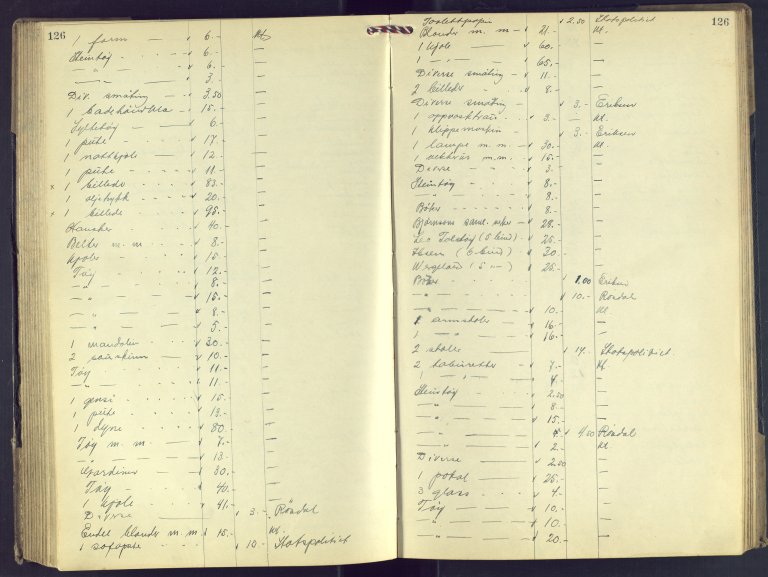 126
1 form — " 6.- Kt.
Stentøy . . . " 6.-
— " — " 6.-
— " — " 3.-
Div. småting — " 3.50
1 badehåndkle . . " 15.-
Sytletøy — " 6.-
1 pute . . . " 17.-
1 nattkjole . . " 12.-
1 pute — " 11.-
x 1 billede . . . " 83.-
1 oljetrykk . . " 20.-
x 1 billede . . . " 95.-
Hansker . . . " 40.-
Belter m. m — " 8.-
Kjoler . . . " 15.-
Tøy " 12.-
— " — " 8.-
— " — " 15.-
— " — " 8.-
— " — " 5.-
1 mandolin " 30.-
2 saueskinn — " 10.-
Tøy " 11.-
— " — " 11.-
1 gensi . . . " 15.-
1 pute . . " 13.-
1 dyne . . . " 80.-
Tøy m. m. " 7.-
— " — " 13.-
Gardiner " 30.-
Tøy " 40.-
1 kjole . . " 41.-
Diverse " 3.- Røsdal
Endel blonder m m " 15.- Kt.
1 sofapute " 10.- Statspolitiet
126
Toalettpapir " 2.50 Statspolitiet
Blonder m. m — " 21.- Kt.
1 kjole " 60.-
1 — " — " 65.-
Diverse småting — " 11.-
2 billeder " 8.-
Diverse småting — " 3.- Eriksen
1 oppvasktrau . . " 3.- Kt.
1 klippemaskin " 3.- Eriksen
1 lampe m. m " 30.- Kt.
m.m. " 15.-
Diverse " 3.-
Stentøy . . . " 8.-
— " — " 8.-
Bøker " 8.-
Bjørnsons saml. verker — " 28.-
Leo Tolstoy (5 bind) . " 25.-
Ibsen (6 bind) " 30.-
Wergeland (5 — " —) " 25.-
Bøker " 1.00 Eriksen
— " — " 10.- Røsdal
— " — " 10.- Kt.
1 armstoler " 16.-
1 — " — " 16.-
2 stoler — " 14.- Statspolitiet.
2 taburetter " 7.- Kt.
1 — " — " 4.-
Stentøy . . " 2.50
— " — " 8.-
— " — " 15.-
— " — " 4.50 Røsdal
— " — " 2.- Kt.
Diverse " 2.50
1 pokal " 25.-
3 glass . . . " 4.-
Tøy " 10.-
— " — " 10.-
— " — " 20.-